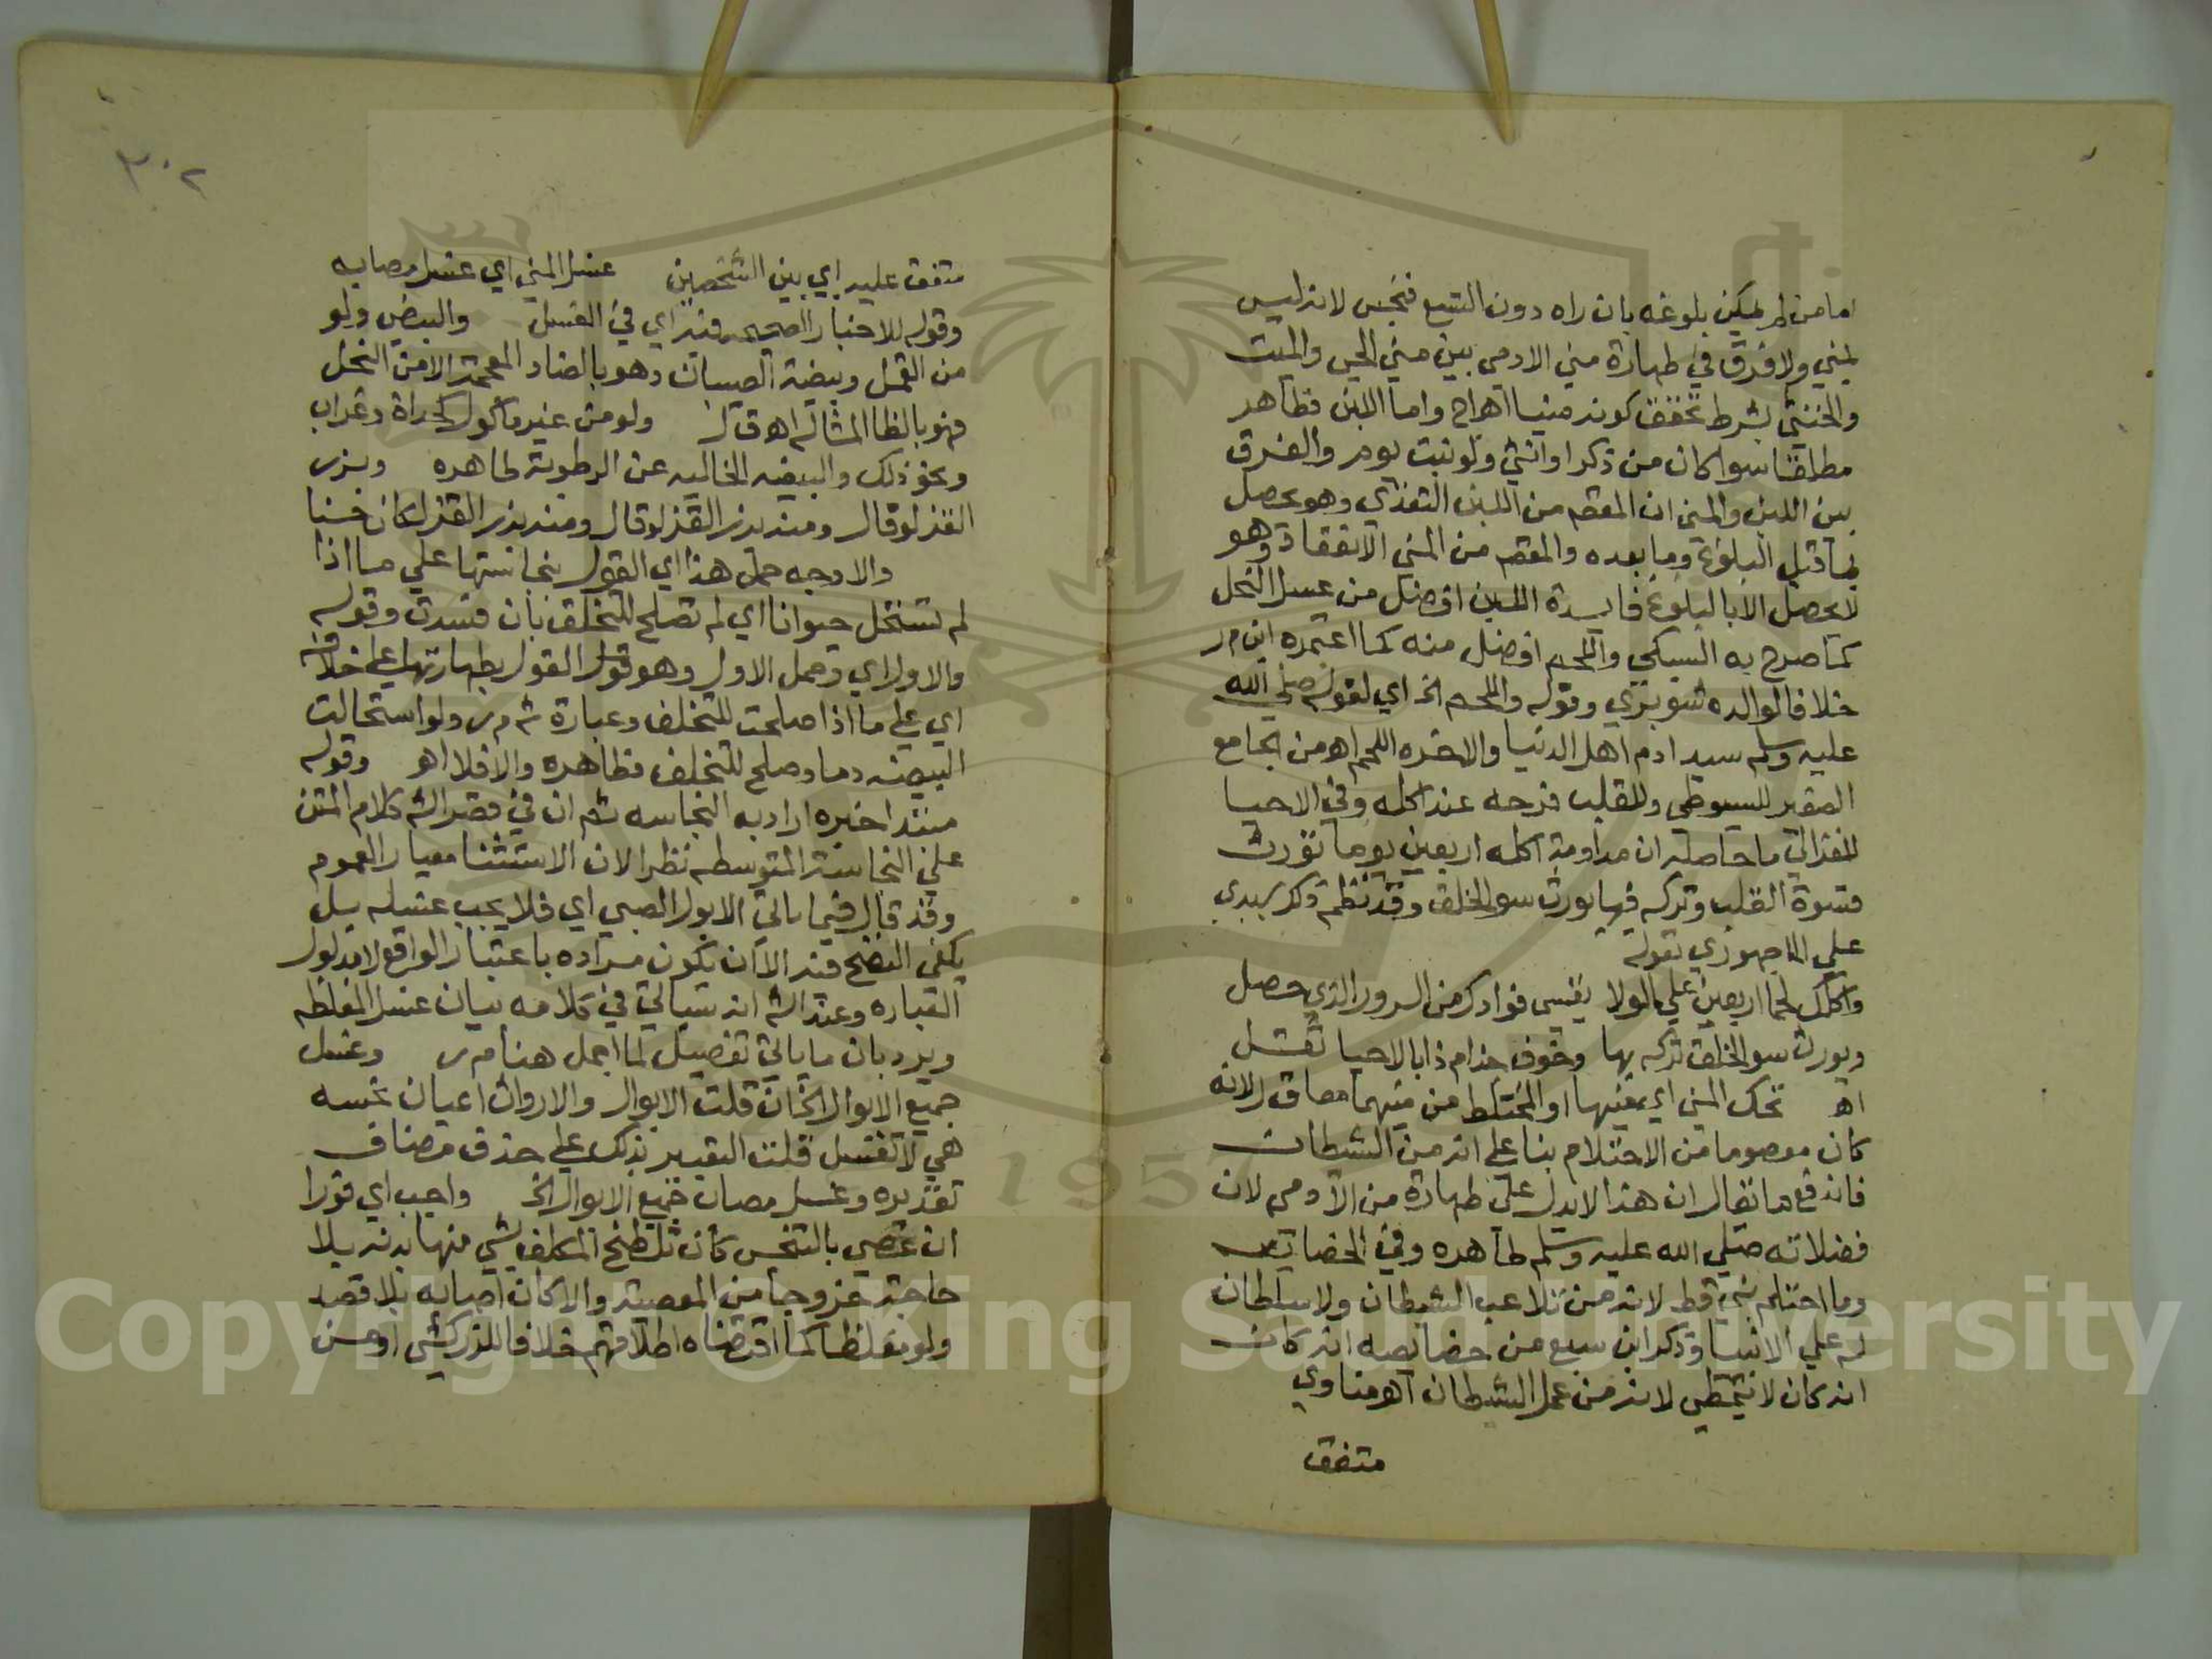 اما من لم يمكن بلوغه بان راه دون التسع فنجس لانه ليس
بمني ولا فرق في طهارة مني الادمي بين مني الحي والميت
والخنثي بشرط تحقق كونه منيا اهراح واما اللبن فطاهر
مطلقا سوا كان من ذكر او انثي ولو بنت يوم والفرق
بين اللبن والمني ان المقصد من اللبن التغذي وهو يحصل
بما قبل البلوغ وما بعده والمقصد من المني الانعقاد وهو
لا يحصل الا بالبلوغ فايدة اللبن افضل من عسل النحل
كما صرح به السبكي واللحم افضل منه كما اعتمده ابن م ر
خلافا لوالده شوبري وقوله واللحم الخ اي لقوله صلي الله
عليه وسلم سيد ادم اهل الدنيا والاخره اللحم اه من الجامع
الصغير للسيوطي وللقلب فرحه عند اكله وفي الاحيا
للغزالي ما حاصله ان مداومة اكله اربعين يوما تورث
قسوة القلب وتركه فيها يورث سوالخلق وقد نظم ذكر سيدي
علي الاجهوري بقوله
واكلك لحما اربعين علي الولا يقسي فوادك من السرور الذي حصل
ويورث سوالخلق تركه بها وخوف جذام ذا بالاحيا نقل
اه تحك المني اي منيها او المختلط من منيهما معا ق ل لانه
كان معصوما من الاحتلام بنا علي انه من الشيطان
فاندفع ما يقال ان هذا لا يدل علي طهارة من الادمي لان
فضلاته صلي الله عليه وسلم طاهره وفي الخصايص
وما احتلم نبي قط لانه من تلاعب الشيطان ولا سلطان
له علي الانبيا وذكر ابن سبع من خصايصه انه كان
انه كان لا يتمطي لانه من عمل الشيطان اه مناوي
متفق
٣٠٢
متفق عليه اي بين الشخصين غسل المني اي غسل مصابه
وقوله للاخبار الصحيحه فيه اي في الغسل والبيض ولو
من القمل وبيضة الصيبان وهو بالضاد المعجمة الا من النحل
فهو بالظا المشاله اه ق ل ولو من غير ماكول كحداة وغراب
ونحو ذلك والبيضه الخاليه عن الرطوبة طاهره وبزر
القز لو قال ومنه بزر القز لو قال ومنه بزر القز لكان حسنا
والاوجه حمل هذا اي القول بنجاستها علي ما اذا
لم تستحل حيوانا اي لم تصلح للتخلق بان فسدت وقوله
والاول اي وحمل الاول وهو قول القول بطهارتها علي خلافه
اي علي ما اذا صلحت للتخلف وعبارة ش م ر ولو استحالت
البيضه دما وصلح للتخلف فطاهره والا فلا اه وقوله
مبتدا خبره اراد به النجاسه ثم ان في قصر الش كلام المتن
علي النجاسة المتوسطه نظرا لان الاستثنا معيار العموم
وقد قال فيما ياتي الا بول الصبي اي فلا يجب غسله بل
يكفي النضح فيه الا ان يكون مراده باعتبار الواقع لا مدلول
العباره وعند الش انه سياتي في كلامه بيان غسل المغلظه
ويرد بان ما ياتي تفصيل لما اجمل هنا م ر وغسل
جميع الابوال الخ ان قلت الابوال والارواث اعيان نجسه
هي لا تغسل قلت التعبير بذلك علي حذف مضاف
تقديره وغسل مصاب جميع الابوال الخ واجب اي فورا
ان عصي بالتنجس كان تلطخ المكلف بشي منها بدنه بلا
حاجة خروجا من المعصية والا كان اصابه بلا قصد
ولو مغلظا كما اقتضاه اطلاقهم خلافا للزركشي او من